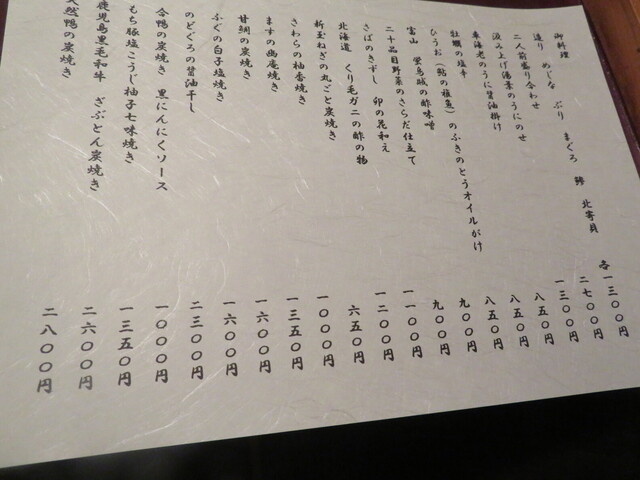 御料理
造り めじな ぶり まぐろ 北寄貝 各一三〇〇円
二人前盛り合わせ 二七〇〇円
汲み上げ湯葉のうにのせ 一三〇〇円
車海老のうに醤油掛け 八五〇円
牡蠣の塩辛 八五〇円
ひうお（鮎の稚魚）のふきのとうオイルがけ 八五〇円
富山 蛍烏賊の酢味噌 九〇〇円
二十品目野菜のさらだ仕立て 九〇〇円
さばのきずし 卯の花和え 一一〇〇円
北海道 くり毛ガニの酢の物 一二〇〇円
新玉ねぎの丸ごと炭焼き 六五〇円
さわらの柚香焼き 一〇〇〇円
ますの幽庵焼き 一三五〇円
甘鯛の炭焼き 一六〇〇円
ふぐの白子塩焼き 一六〇〇円
のどぐろの醤油干し 二三〇〇円
合鴨の炭焼き 黒にんにくソース 一〇〇〇円
もち豚塩こうじ柚子七味焼き 一三五〇円
鹿児島黒毛和牛 ざぶとん炭焼き 二六〇〇円
天然鴨の炭焼き 二八〇〇円